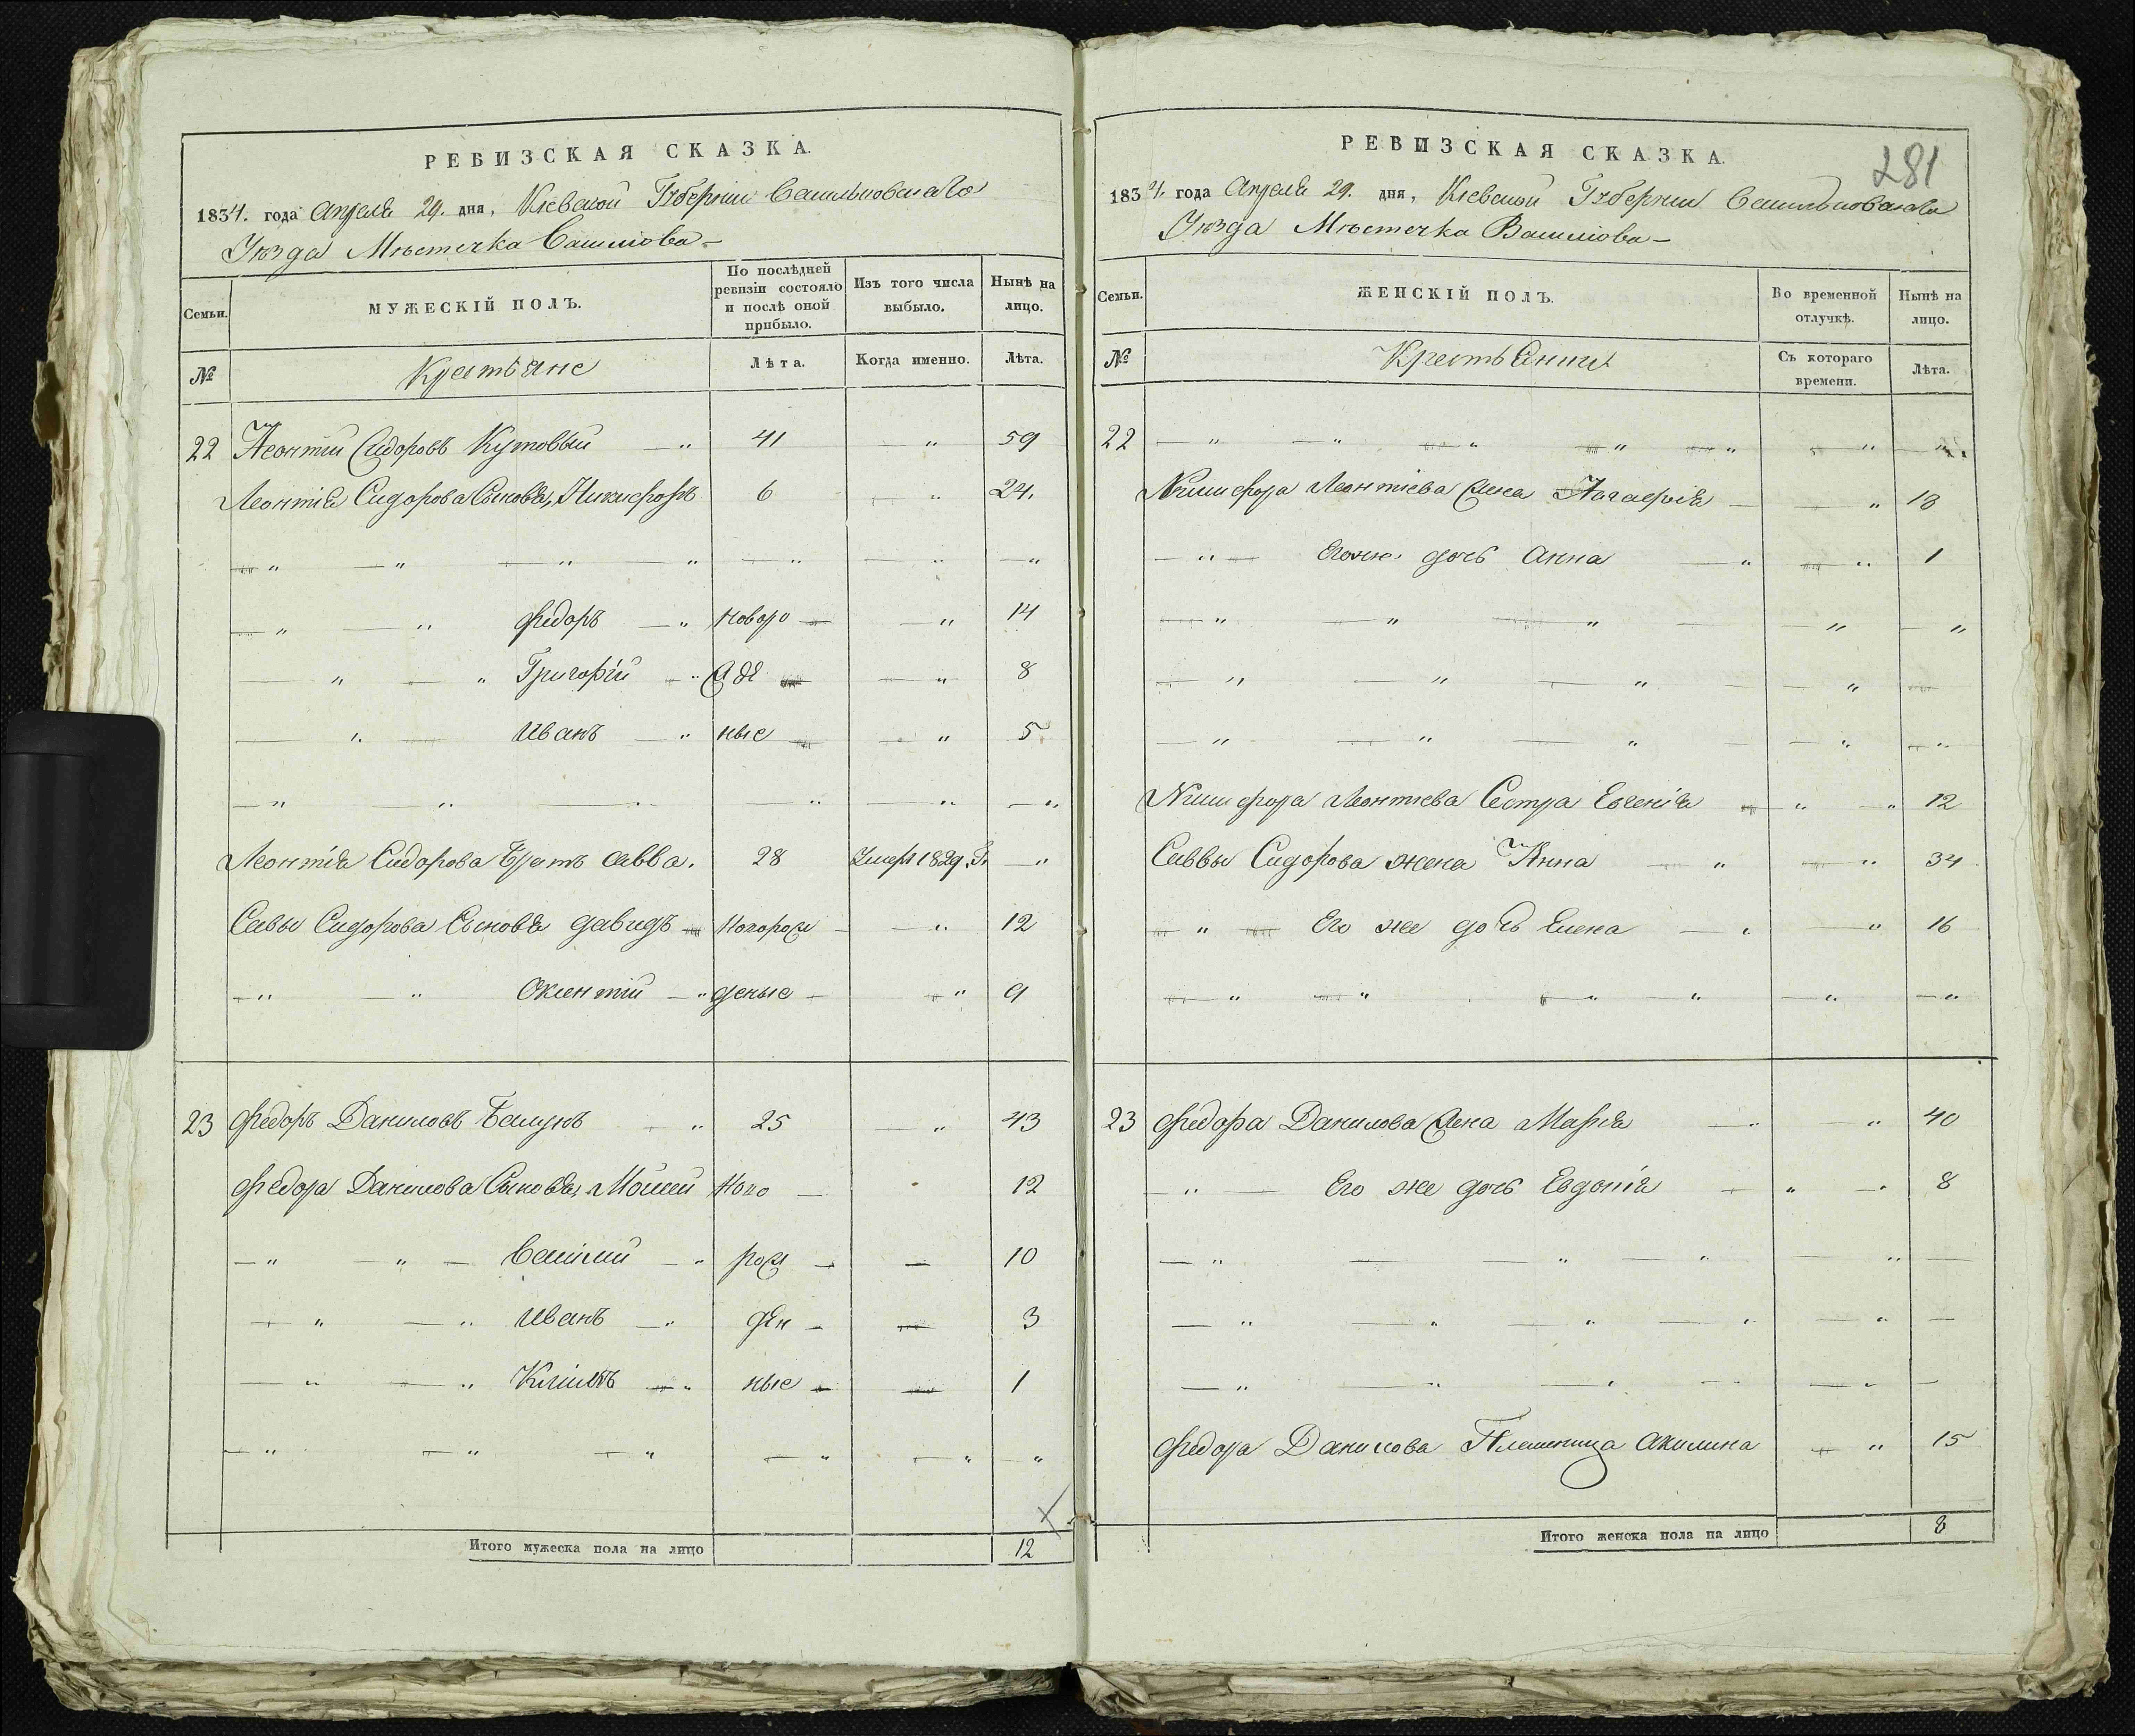 РЕВИЗСКАЯ СКАЗКА.
1834. года Апреля 29. дня, Кіевской Губерніи Васильковскаго
Уѣзда Мѣстечка
Семьи.
МУЖЕСКІЙ ПОЛЪ.
По послѣдней ревизіи состояло и послѣ оной прибыло.
Изъ того числа выбыло.
Нынѣ на лицо.
№
Крестьяне
Лѣта.
Когда именно.
Лѣта.
22 Леонтій Сидоровъ Кутовый 41 59
Леонтія Сидорова Сыновья, Никифоръ 6 24.
Федоръ новоро 14
Григорій 8
Иванъ ные 5
Леонтія Сидорова Братъ Савва. 28 Умеръ 1829. Г.
Савы Сидорова Сыновья Давидъ 12
деные 9
23 Федоръ Даниловъ 25 43
Федора Данилова Сыновья, Мойсей Ново 12
Василій рож 10
Иванъ ден 3
Клімъ ные 1
Итого мужеска пола на лицо 12
РЕВИЗСКАЯ СКАЗКА.
281
1834. года Апреля 29. дня, Кіевской Губерніи Васильковскаго
Уѣзда Мѣстечка
Семьи.
ЖЕНСКІЙ ПОЛЪ.
Во временной отлучкѣ.
Нынѣ на лицо.
№
Съ котораго времени.
Лѣта.
22
Никифора Леонтіева жена 18
дочь Анна 1
Никифора Леонтіева Сестра Евгенія 12
Саввы Сидорова жена Анна 34
Его же дочь Елена 16
23 Федора Данилова жена Марія 40
Его же дочь Евдокія 8
Федора Данилова Племеница Акилина 15
Итого женска пола на лицо 8